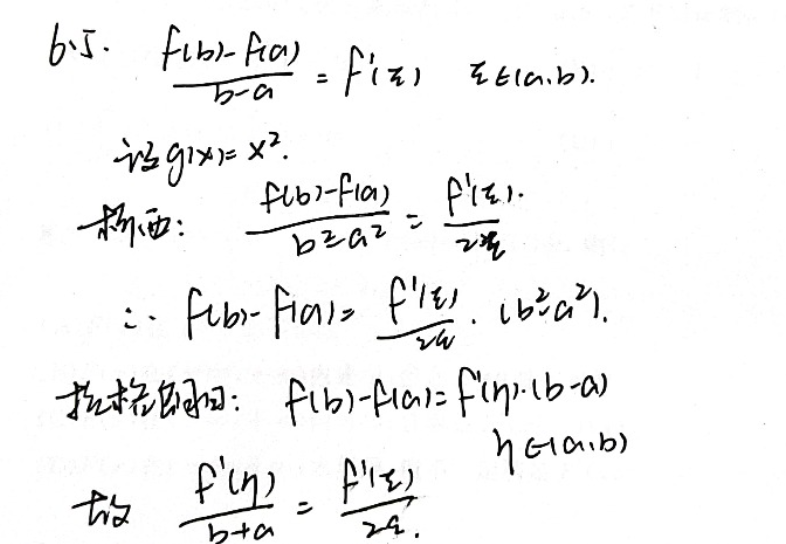 6.5. \frac{f(b)-f(a)}{b-a} = f'(ξ) ξ∈(a.b).
设 g(x)= x².
柯西: \frac{f(b)-f(a)}{b²-a²} = \frac{f'(ξ)}{2ξ}.
∴ f(b)-f(a)= \frac{f'(ξ)}{2ξ}. (b²-a²).
拉格朗日: f(b)-f(a)=f'(η)·(b-a)
η∈(a.b)
故 \frac{f'(η)}{b+a} = \frac{f'(ξ)}{2ξ}.